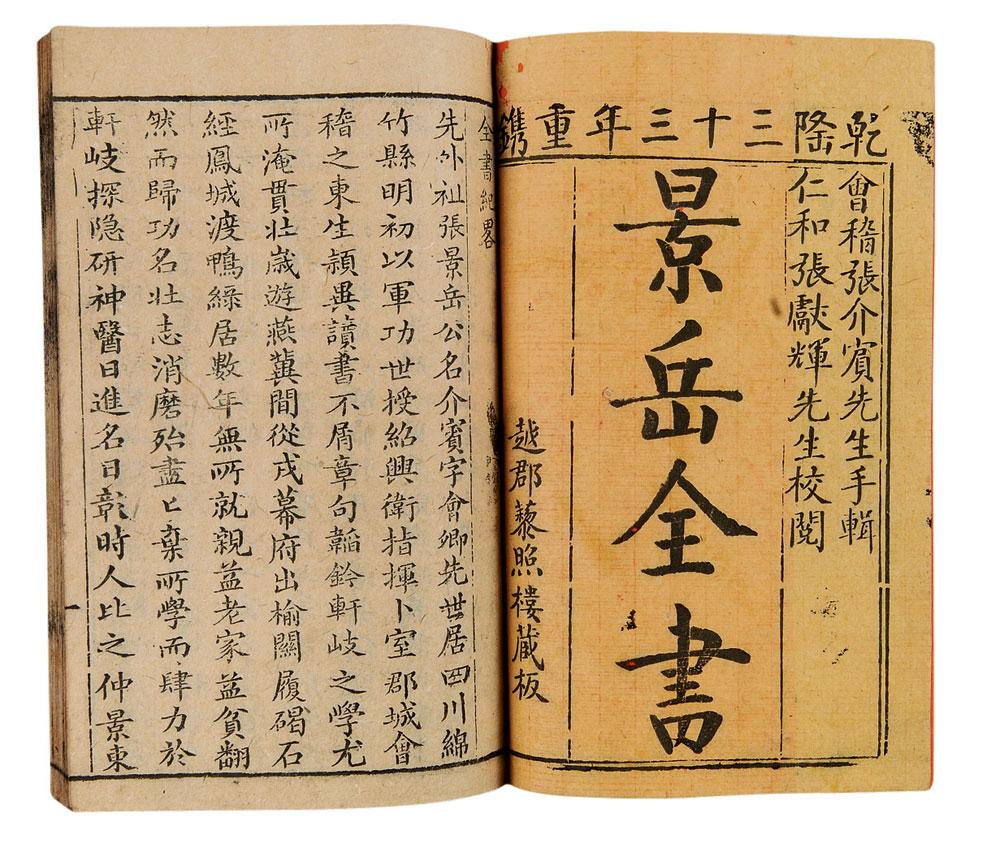 乾隆三十三年重鐫
會稽張介賓先生手輯
仁和張獻輝先生校閱
景岳全書
越郡藜照樓藏板
全書紀畧
先外祖張景岳公名介賓字會卿先世居四川綿
竹縣明初以軍功世授紹興衛指揮卜室郡城會
稽之東生頴異讀書不屑章句韜鈐軒岐之學尤
所淹貫壯歲遊燕冀間從戎幕府出榆關履碣石
經鳳城渡鴨綠居數年無所就親益老家益貧翻
然而歸功名壯志消磨殆盡乚棄所學而肆力於
軒岐探隐研神醫日進名日彰時人比之仲景東
一